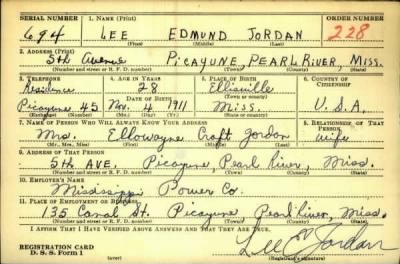 SERIAL NUMBER 1. NAME (Print) ORDER NUMBER
694 LEE EDMUND JORDAN 228
(First) (Middle) (Last)
2. ADDRESS (Print)
5th Avenue Picayune, PEARL RIVER, MISS.
(Number and street or R. F. D. number) (Town) (County) (State)
3. TELEPHONE 4. AGE IN YEARS 5. PLACE OF BIRTH 6. COUNTRY OF CITIZENSHIP
Residence 28 Ellisville
DATE OF BIRTH
Picayune 45 Nov. 4 1911 Miss. U.S.A.
(Exchange) (Number) (Mo.) (Day) (Yr.) (State or country)
7. NAME OF PERSON WHO WILL ALWAYS KNOW YOUR ADDRESS 8. RELATIONSHIP OF THAT PERSON
Mrs. Craft Jordan wife
(Mr., Mrs., Miss) (First) (Middle) (Last)
9. ADDRESS OF THAT PERSON
5th AVE, Picayune, Pearl River, Miss.
(Number and street or R. F. D. number) (Town) (County) (State)
10. EMPLOYER'S NAME
Mississippi Power Co.
11. PLACE OF EMPLOYMENT OR BUSINESS
135 Canal St. Picayune Pearl River, Miss.
(Number and street or R. F. D. number) (Town) (County) (State)
I AFFIRM THAT I HAVE VERIFIED ABOVE ANSWERS AND THAT THEY ARE TRUE.
Lee E. Jordan
REGISTRATION CARD
D. S. S. Form 1 (over) (Registrant's signature)